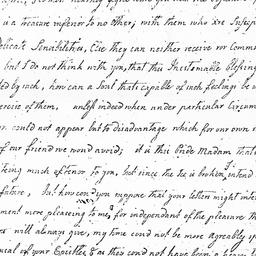 is a treasure inferior to no other; with them who are suscep
delicate Sensibilities, Else they can neither receive nor commu
but I do not think with you, that this Inestimable Blessing
ted by such, for how can a Soul that's capable of such feelings be w
exercise of them, unless indeed when under particular Circum
or could not appear but to disadvantage which for our own
of our friend we would avoid; it is this Pride Madam that
tting much oftener to you, but since the Ice is broken, I intend
future, But how cou'd you suppose that your letters might inter
ment more pleasing to me, for independent of the pleasure th
ers will always give, my time could not be more agreeably sp
usal of your Epistles